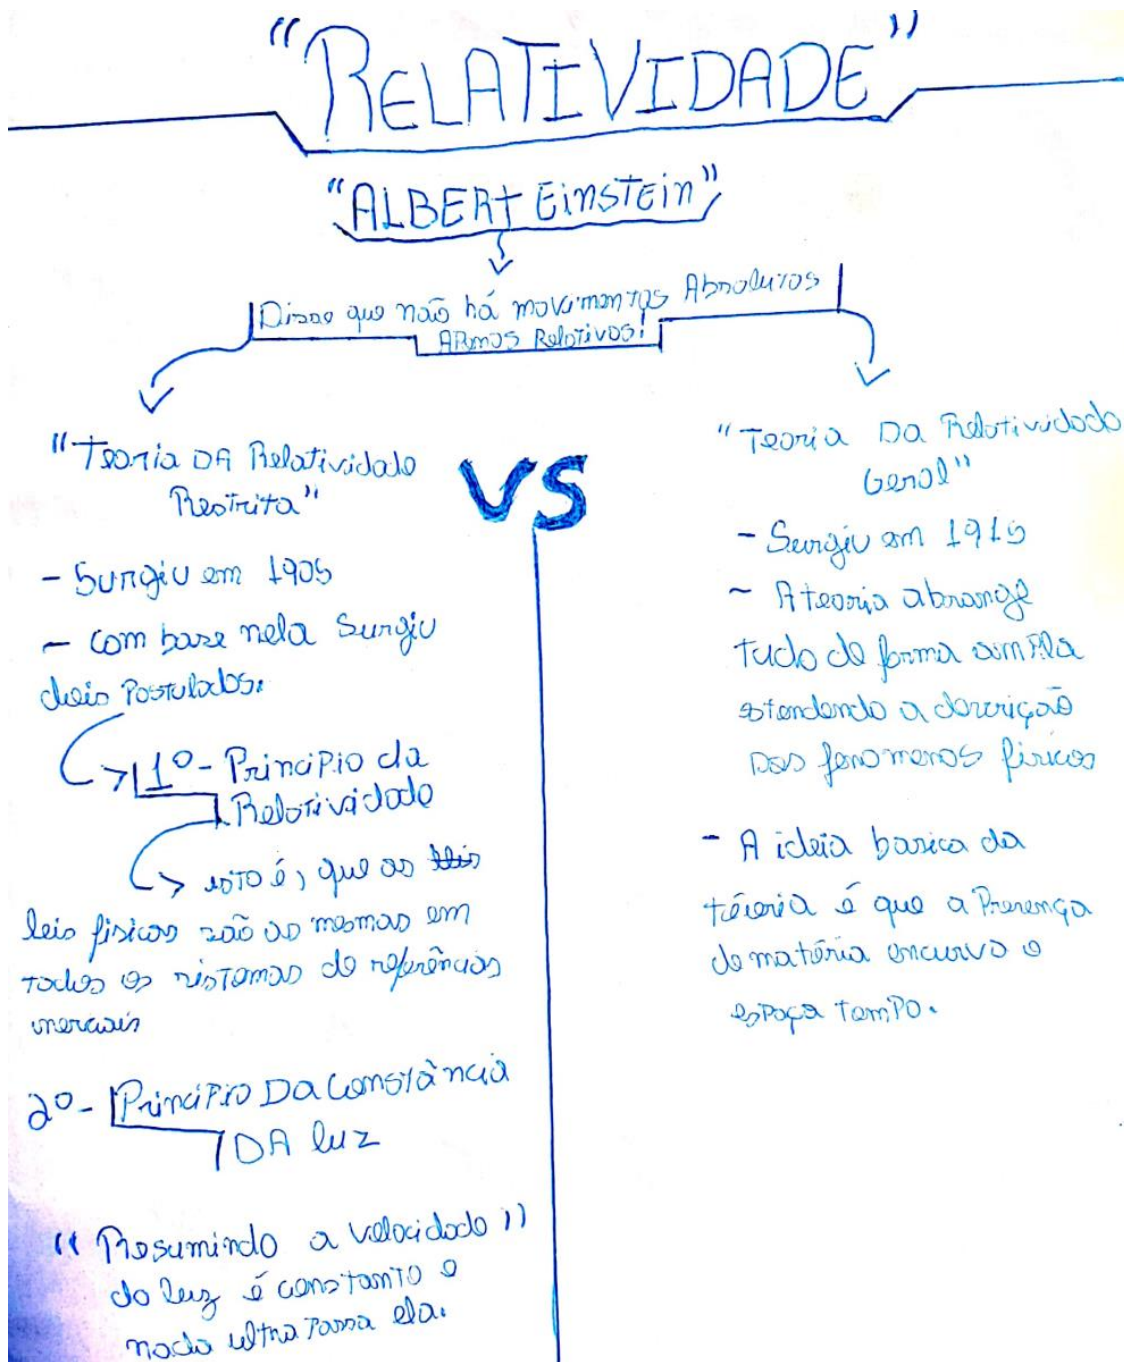 "RELATIVIDADE"
"ALBERT EINSTEIN"
Disse que não há movimentos Absolutos
Relativos!
"Teoria DA Relatividade
Restrita"
- Surgiu em 1905
- com base nela surgiu
dois Postulados:
1º - Principio da
Relatividade
isto é, que as leis
leis fisicas são as mesmas em
todos os sistemas de referências
inerciais
2º - Principio Da Constância
DA luz
"Resumindo a velocidade"
da luz é constante e
nada ultra passa ela.
VS
"Teoria Da Relatividade
Geral"
- Surgiu em 1915
- A teoria abrange
tudo de forma ampla
estendendo a descrição
Dos fenomenos fisicos
- A ideia basica da
téoria é que a Presença
de matéria encurva o
espaço tempo.